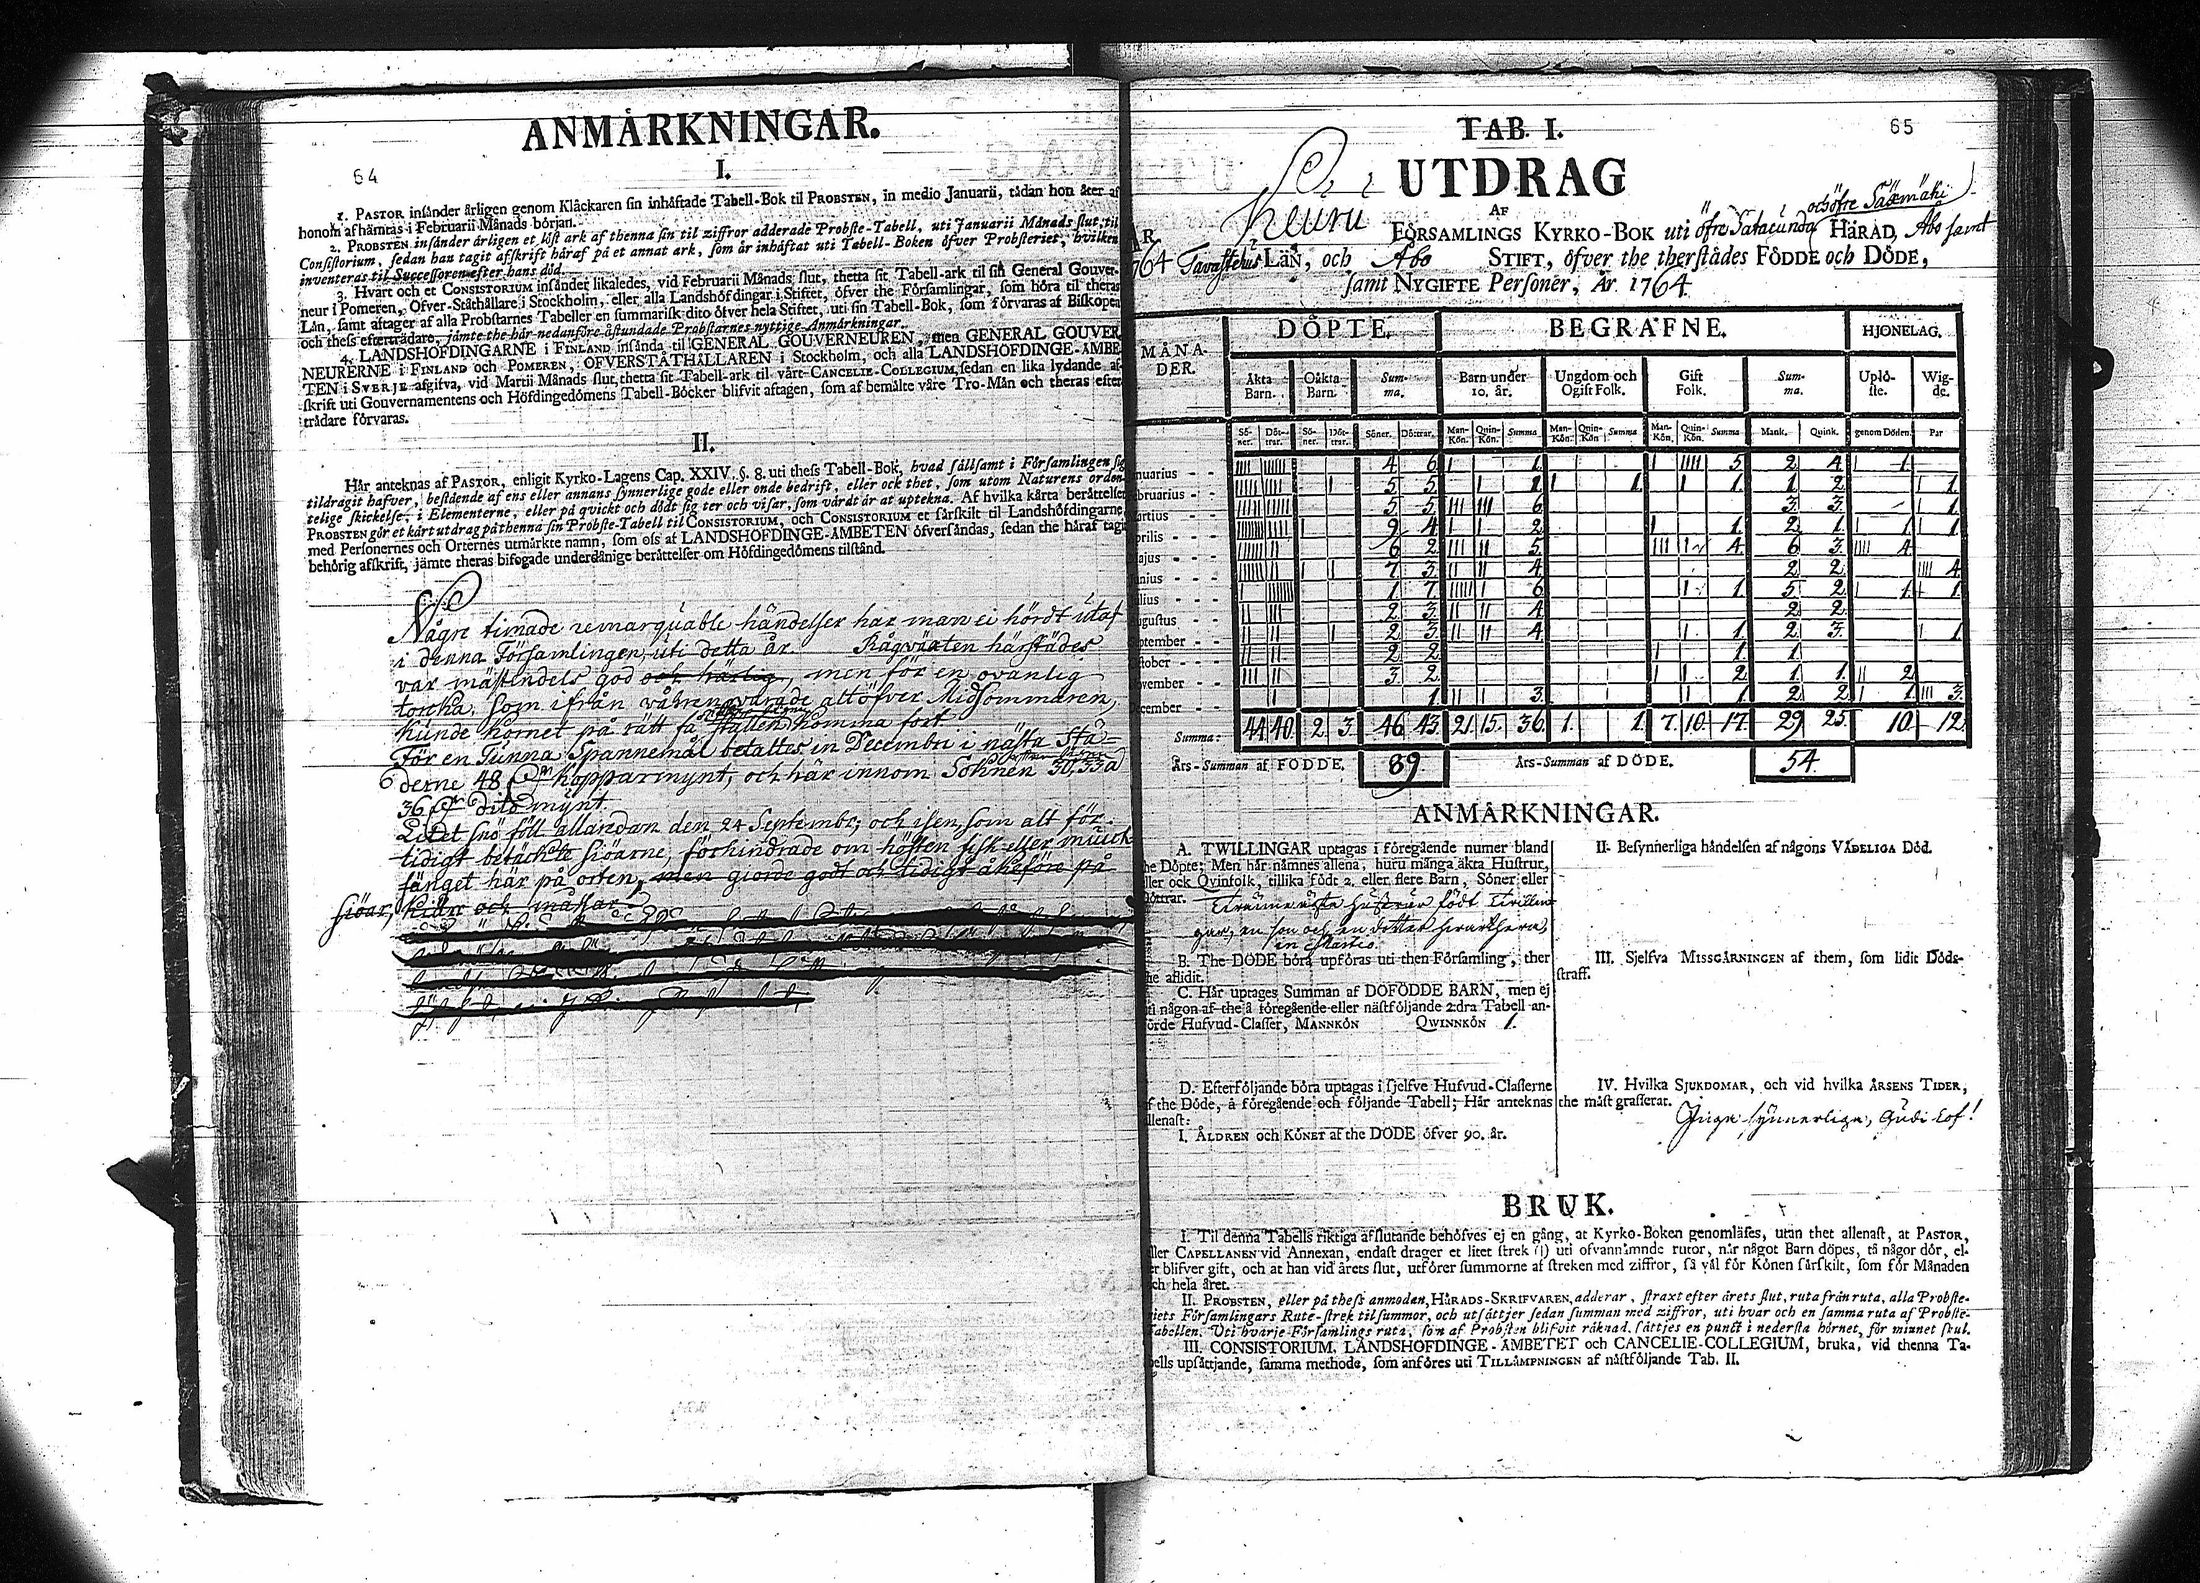 64
ANMÅRKNINGAR.
I.
1. PASTOR insånder årligen genom Klåckaren sin inhåftade Tabell-Bok til PROBSTEN, in medio Januarii, tådan hon åter af
honom afhämtas i Februarii Månads början.
2. PROBSTEN insånder årligen et löst ark af thenna sin til ziffror adderade Probste-Tabell, uti Januarii Månads slut, til
Consistorium, sedan han tagit afskrift håraf på et annat ark, som är inhåftat uti Tabell-Boken öfver Probsteriet, hvilken
inventeras til Successoren efter hans död.
3. Hvart och et CONSISTORIUM insånder likaledes, vid Februarii Månads slut, thetta sit Tabell-ark til sin General Gouver-
neur i Pomeren, Öfver-Ståthållare i Stockholm, eller alla Landshöfdingar i Stiftet, öfver the Församlingar, som höra til theras
Län, samt aftager af alla Probstarnes Tabeller en summarisk dito öfver hela Stiftet, uti sin Tabell-Bok, som förvaras af Biskopen
och thess efterträdare, jämte the hår nedanföre åstundade Probstarnes nyttige Anmärkningar.
4. LANDSHÖFDINGARNE i FINLAND insånda til GENERAL GOUVERNEUREN, men GENERAL GOUVER-
NEURERNE i FINLAND och POMEREN, ÖFVERSTÅTHÅLLAREN i Stockholm, och alla LANDSHÖFDINGE-ÄMBE
TEN i SVERJE afgifva, vid Martii Månads slut, thetta sit Tabell-ark til vårt CANCELIE-COLLEGIUM, sedan en lika lydande af-
skrift uti Gouvernamentens och Höfdingedömens Tabell-Böcker blifvit aftagen, som af bemälte våre Tro-Mån och theras efter
trädare förvaras.
II.
Hår anteknas af PASTOR, enligit Kyrko-Lagens Cap. XXIV. §. 8. uti thess Tabell-Bok, hvad sållsamt i Församlingen sig
tildragit hafver, bestående af ens eller annans synnerlige gode eller onde bedrift, eller ock thet, som utom Naturens orden-
telige skickelse, i Elementerne, eller på quickt och dödt sig ter och visar, som vårdt är at uptekna. Af hvilka kårta beråttelser
PROBSTEN gör et kårt utdrag på thenna sin Probste-Tabell til CONSISTORIUM, och CONSISTORIUM et sårskilt til Landshöfdingarne,
med Personernes och Orternes utmårkte namn, som oss af LANDSHÖFDINGE-ÄMBETEN öfversåndas, sedan the håraf tagit
behörig afskrift, jämte theras bifogade underdånige beråttelser om Höfdingedömens tilstånd.
Någre timade remarquable händelser har man ei hördt utaf
i denna Församlingen, uti detta år. Rågväxten härstädes
var mästendels god och härlig, men för en ovanlig
torcka, som ifrån våhren varade alt öfver Midsommaren,
kunde kornet på rätt få ställen komma fort.
För en Tunna Spannemål betaltes in Decembri i nästa Stä-
derne 48 kopparmynt, och här innom Soknen 30, 33 a
36 dito mynt.
Letet snö föll allaredan den 24 Septembr; och isen, som alt för
tidigt betäckte siöarne, förhindrade om hösten fisk eller muick
fänget här på orten, men giorde godt och tidigt åkeföre på
siöar, kiärr och måssar.
65
TAB. I.
UTDRAG
AF
Keuru FÖRSAMLINGS KYRKO-BOK uti öfre Satacunda och öfre Säxmäki HÄRAD, Åbo samt
Tavastehus LÄN, och Åbo STIFT, öfver the therstådes FÖDDE och DÖDE,
samt NYGIFTE Personer, År 1764
MÅNA-DER. DÖPTE. BEGRAFNE. HJONELAG.
Äkta Barn. Oåkta Barn. Sum-ma. Barn under 10. år. Ungdom och Ogift Folk. Gift Folk. Sum-ma. Uplö-ste. Wig-de.
Sö-ner. Döt-trar. Sö-ner. Döt-trar. Söner. Döttrar. Man-Kön. Quin-Kön. Summa Man-Kön. Quin-Kön. Summa Man-Kön. Quin-Kön. Summa Mank. Quink. genom Döden. Par
nuarius - - 4 6 1. 5 2 4 1.
bruarius - - 5 5 1 1. 1. 1 2 1.
artius - - 5 5 6 3. 3. 1.
prilis - - 9 4 2 1 2 1. 1 1
ajus - - 6 2 5 4. 6 3. 4
nius - - 7 3 4 2 2 4.
lius - - 1 7 6 1. 5 2 1. 1.
ugustus - - 2 3 4 2 2
ptember - - 2 3 4 1. 2 3. 1
tober - - 2 2 1 1.
vember - - 3 2 2 1. 1. 2
cember - - 1. 3. 1. 2 2 1. 3.
Summa: 44 40. 2. 3. 46 43. 21. 15. 36. 1. 1. 7. 10. 17. 29 25. 10. 12.
Års-Summan af FÖDDE. 89 Års-Summan af DÖDE. 54.
ANMÅRKNINGAR.
A. TWILLINGAR uptagas i föregående numer bland
he Döpte; Men hår nåmnes allena, huru många åkta Hustrur,
ller ock Qvinfolk, tillika födt 2. eller flere Barn, Söner eller
öttrar.
gar, en son och en dotter
in Martio.
B. The DÖDE böra upföras uti then Församling, ther
he aflidit.
C. Hår uptages Summan af DÖFÖDDE BARN, men ej
ti någon af the å föregående eller nåstföljande 2:dra Tabell an-
örde Hufvud-Classer, MANNKÖN QWINNKÖN 1.
D. Efterföljande böra uptagas i sjelfve Hufvud-Classerne
f the Döde, å föregående och följande Tabell; Hår anteknas
llenast:
I. ÅLDREN och KÖNET af the DÖDE öfver 90. år.
II. Besynnerliga håndelsen af någons VÅDELIGA Död.
III. Sjelfva MISSGÅRNINGEN af them, som lidit Döds-
straff.
IV. Hvilka SJUKDOMAR, och vid hvilka ÅRSENS TIDER,
the måst grasserat.
Inga synnerliga, Gudi Lof!
BRUK.
I. Til denna Tabells riktiga afslutande behöfves ej en gång, at Kyrko-Boken genomläses, utan thet allenast, at PASTOR,
ller CAPELLANEN vid Annexan, endast drager et litet strek (|) uti ofvannåmnde rutor, når något Barn döpes, tå någor dör, el-
er blifver gift, och at han vid årets slut, utförer summorne af streken med ziffror, så vål för Könen sårskilt, som för Månaden
ch hela året.
II. PROBSTEN, eller på thess anmodan, HÅRADS-SKRIFVAREN, adderar, straxt efter årets slut, ruta från ruta, alla Probste-
iets Församlingars Rute-strek til summor, och utsåttjer sedan summan med ziffror, uti hvar och en samma ruta af Probste-
Tabellen. Uti hvarje Församlings ruta, som af Probsten blifvit råknad, såttjes en punct i nedersta hörnet, för minnet skul.
III. CONSISTORIUM, LANDSHÖFDINGE-ÄMBETET och CANCELIE-COLLEGIUM, bruka, vid thenna Ta-
bells upsåttjande, samma methode, som anföres uti TILLÅMPNINGEN af nåstföljande Tab. II.